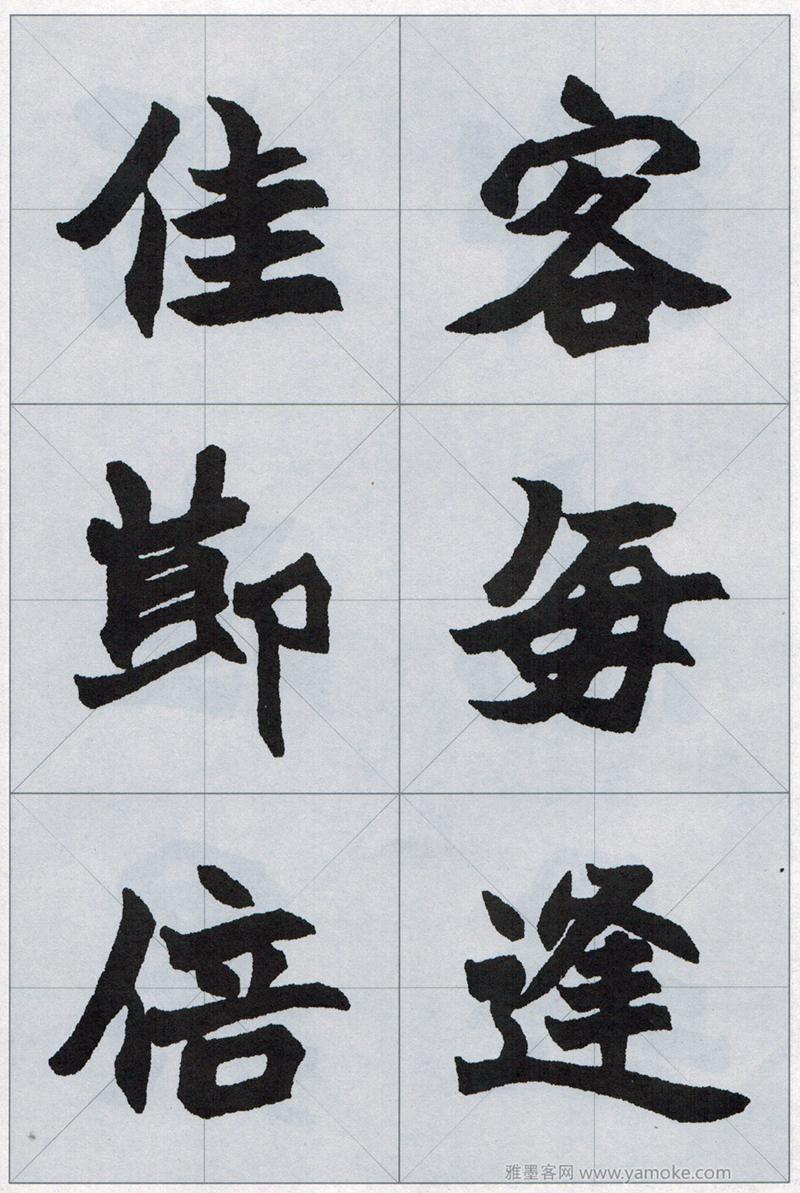 客每逢
佳節倍
雅墨客网 www.yamoke.com